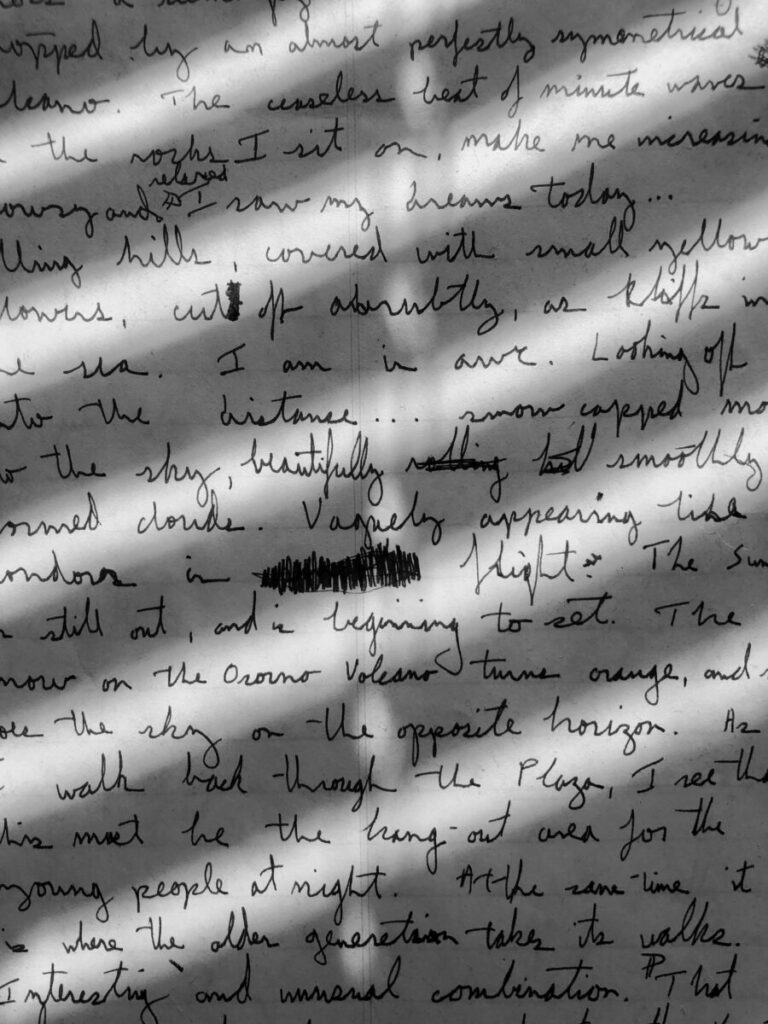 opped by an almost perfectly symmetrical
lcano. The ceaseless beat of minute waves
the rocks I sit on, make me increasin
relaxed
owsy and I saw my dreams today...
lling hills, covered with small yellow
lowers, cut off abrubtly, as kliffs in
he sea. I am in awe. Looking off
nto the distance... snow capped mo
to the sky, beautifully rolling smoothly
ormed clouds. Vaguely appearing like
ondors in flight. The Sun
is still out, and is beginning to set. The
now on the Osorno Volcano turns orange, and
the sky on the opposite horizon. As
I walk back through the Plaza, I see tha
his must be the hang-out area for the
young people at night. At the same-time it
is where the older generation takes its walks.
Interesting and unusual combination. That